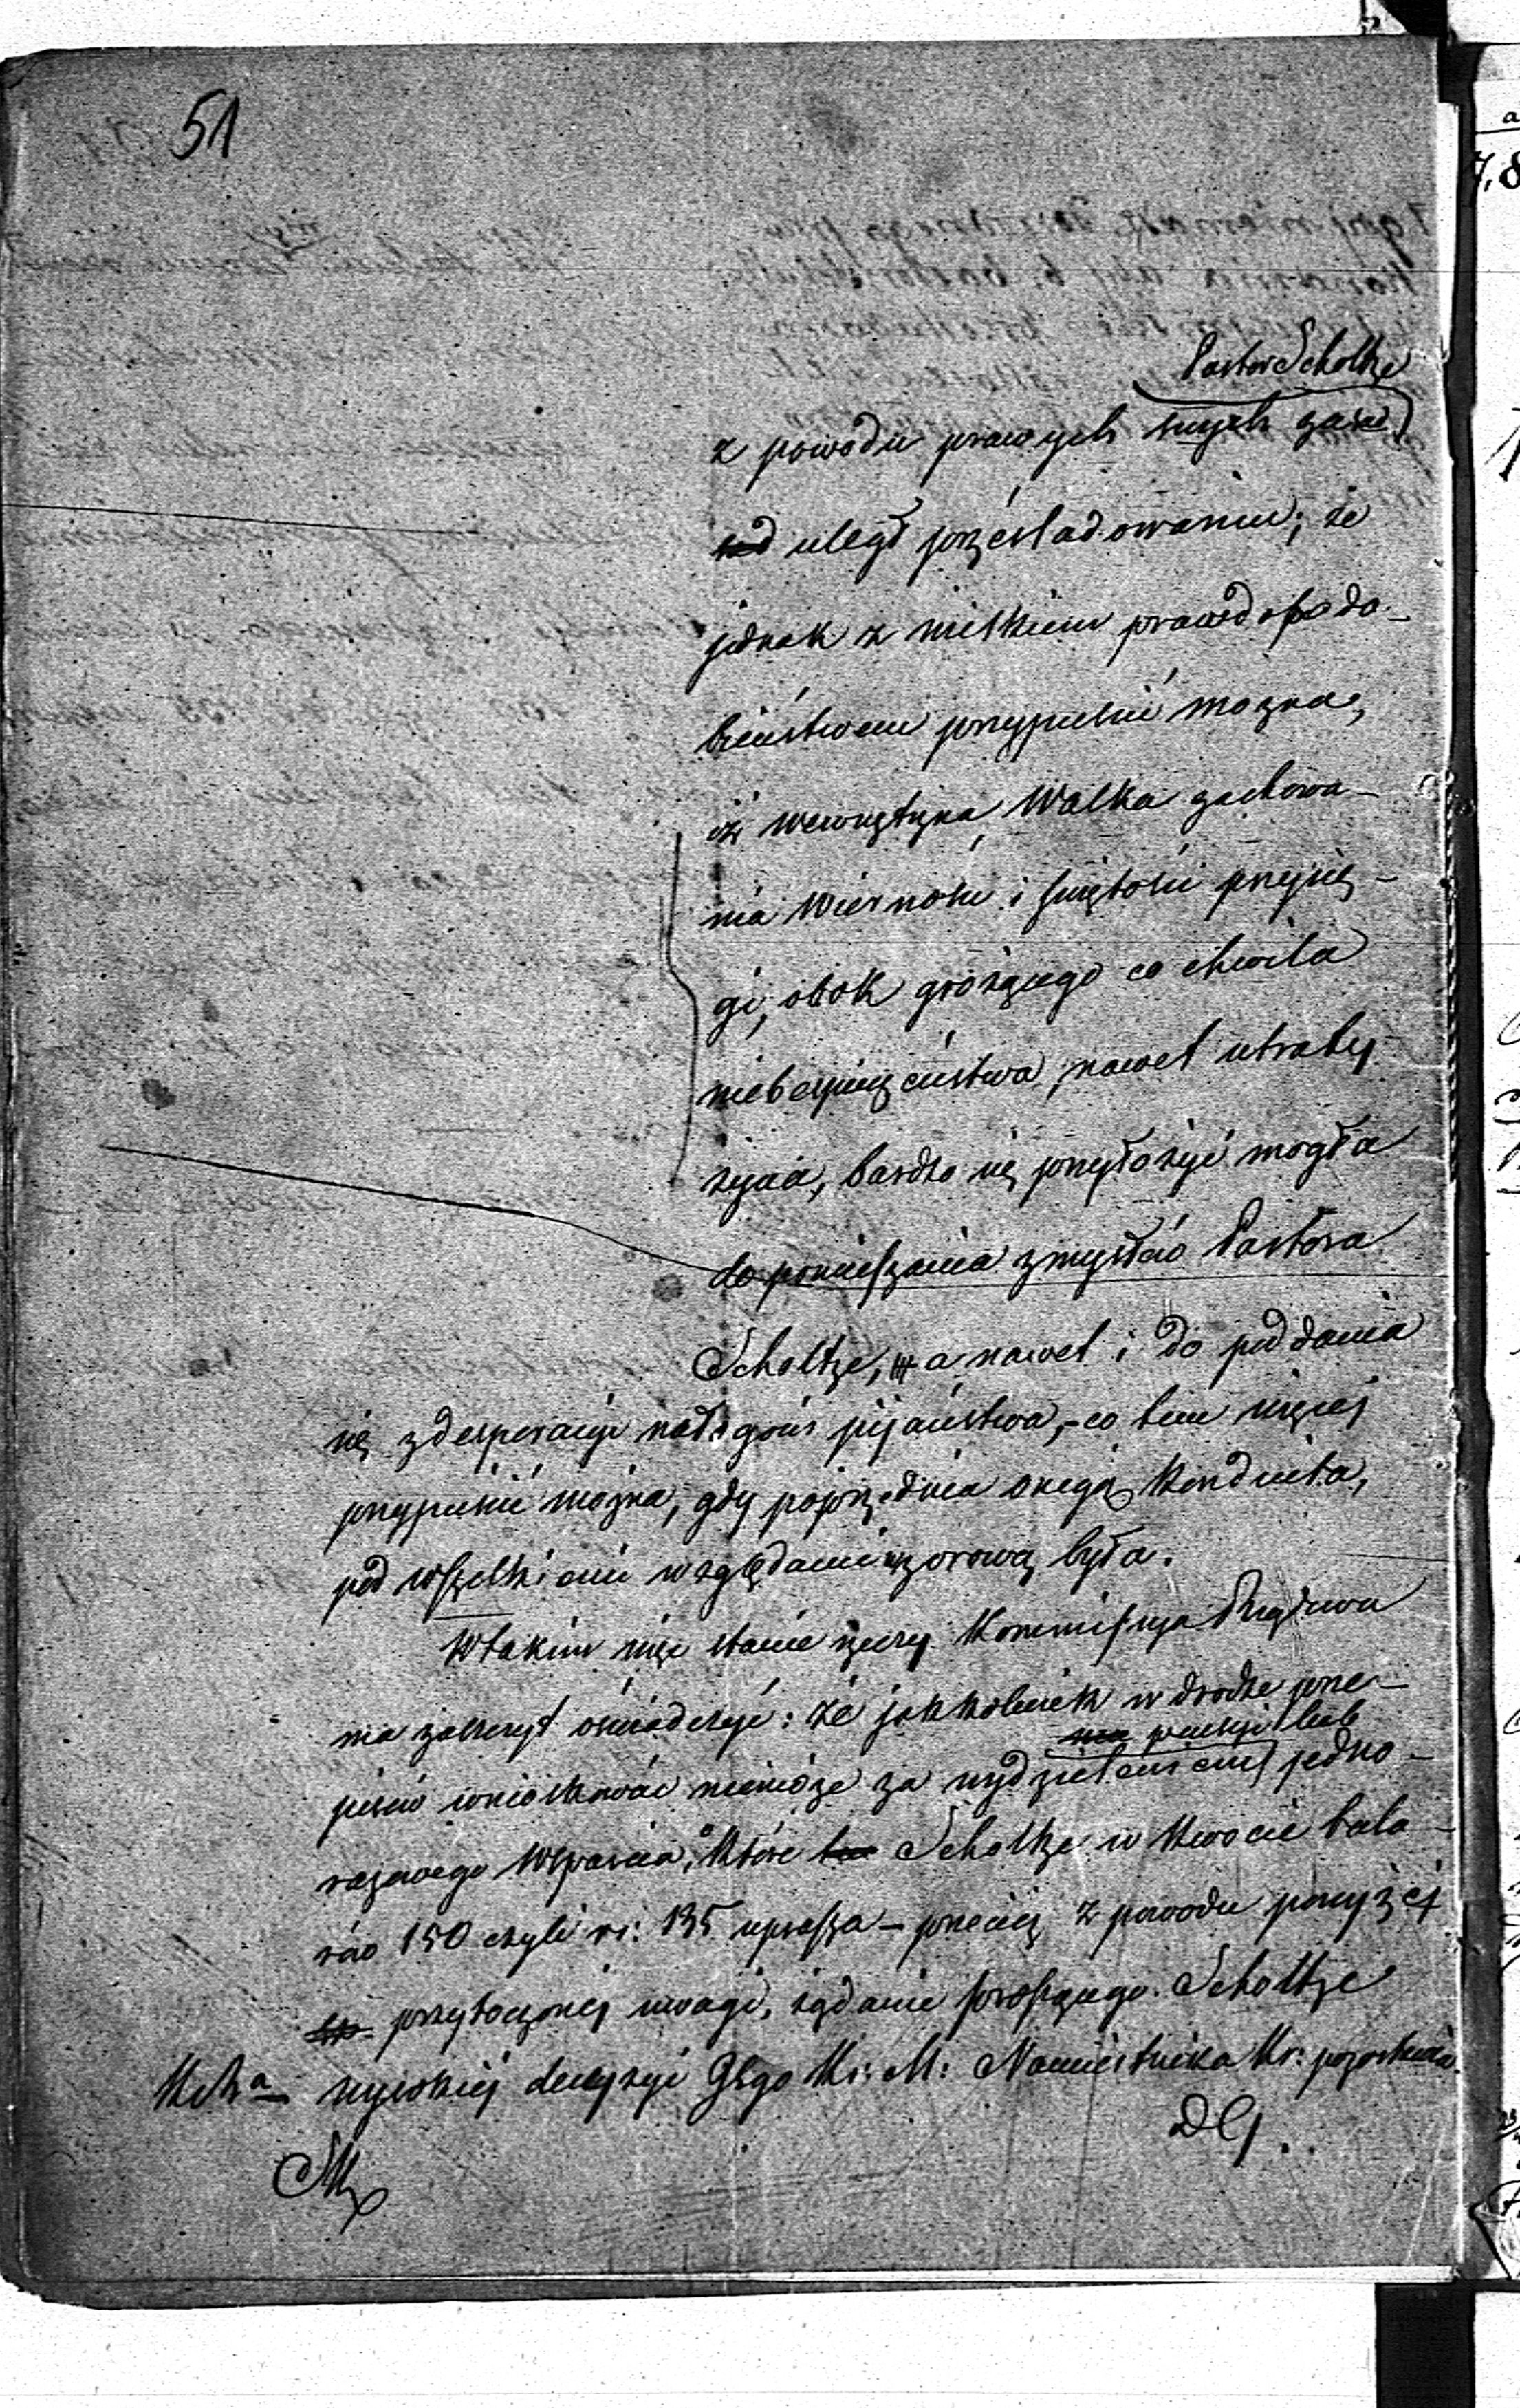 51
Pastor Scholtze
z powodu prawych swych zasad
uległ prześladowaniu; że
jednak z wielkiem prawdopodo-
bieństwem przypuścić można,
iż wewnętrzna Walka zachowa-
nia wierności i świętości przysię-
gi, obok grożącego co chwila
niebespieczeństwa, nawet utraty
życia, bardzo się przyłożyć mogła
do pomieszania zmysłów Pastora
Scholtze, a nawet i do poddania
się z desperacyi nałogowi pijaństwa, - co tem więcej
przypuścić można, gdy poprzednia onego Konduita,
pod wszelkiemi względami wzorową była.
W takim więc stanie rzeczy Kommissyja Rządowa
ma zaszczyt oświadczyć: że jakkolwiek w drodze prze-
pensyi lub
pisów wnioskować niemoże za wydzieleniem jedno-
razowego wsparcia, które Scholtze w kwocie tala-
rów 150 czyli rs: 135 uprasza - przecież z powodu powyżej
przytoczonej uwagi, żądanie proszącego Scholtze
wysokiej decyzyi JO Ks: M: Namiestnika Kr: pozostawia.